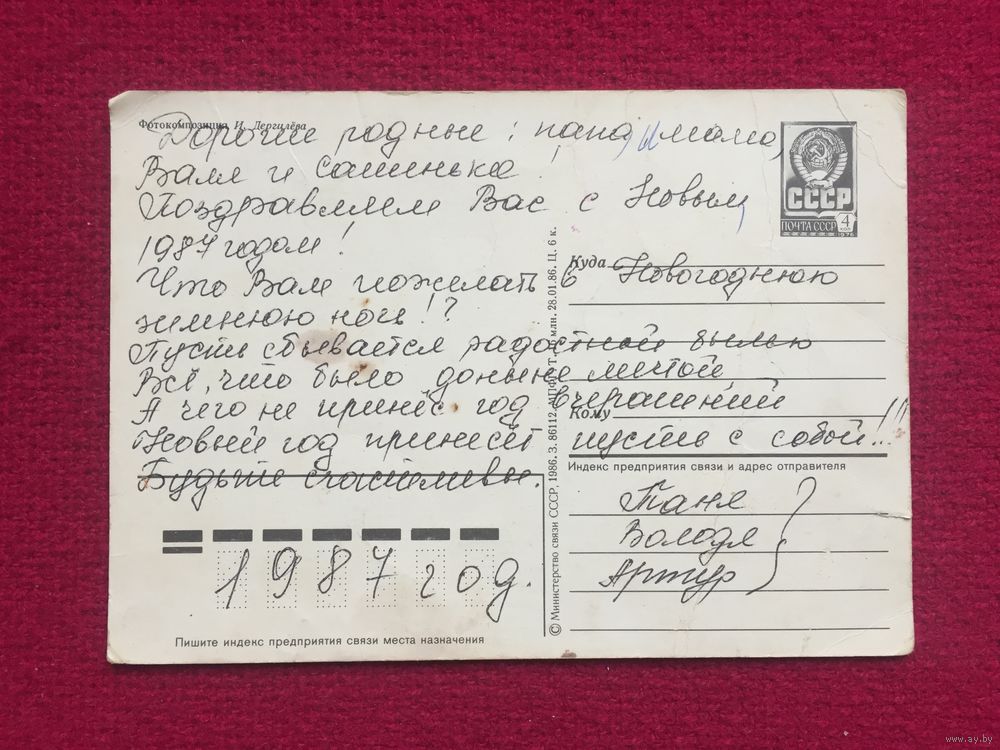 Фотокомпозиция И. Дергилёва
Дорогие родные: папа, и мама,
Валя и Сашенька!
Поздравляем Вас с Новым,
1987 годом!
Что Вам пожелать в Новогоднюю
зимнюю ночь!?
Пусть сбывается радостной былью
Всё, что было доныне мечтой
А чего не принёс год вчерашний
Новый год принесёт пусть с собой!!!
Будьте счастливы.
1987 год.
Таня
Володя
Артур
СССР
ПОЧТА СССР
4
1976
Куда
Кому
Индекс предприятия связи и адрес отправителя
Пишите индекс предприятия связи места назначения
© Министерство связи СССР, 1986. З. 86112. МПФГ. Т. млн. 28.01.86. Ц. 6 к.
www.ay.by